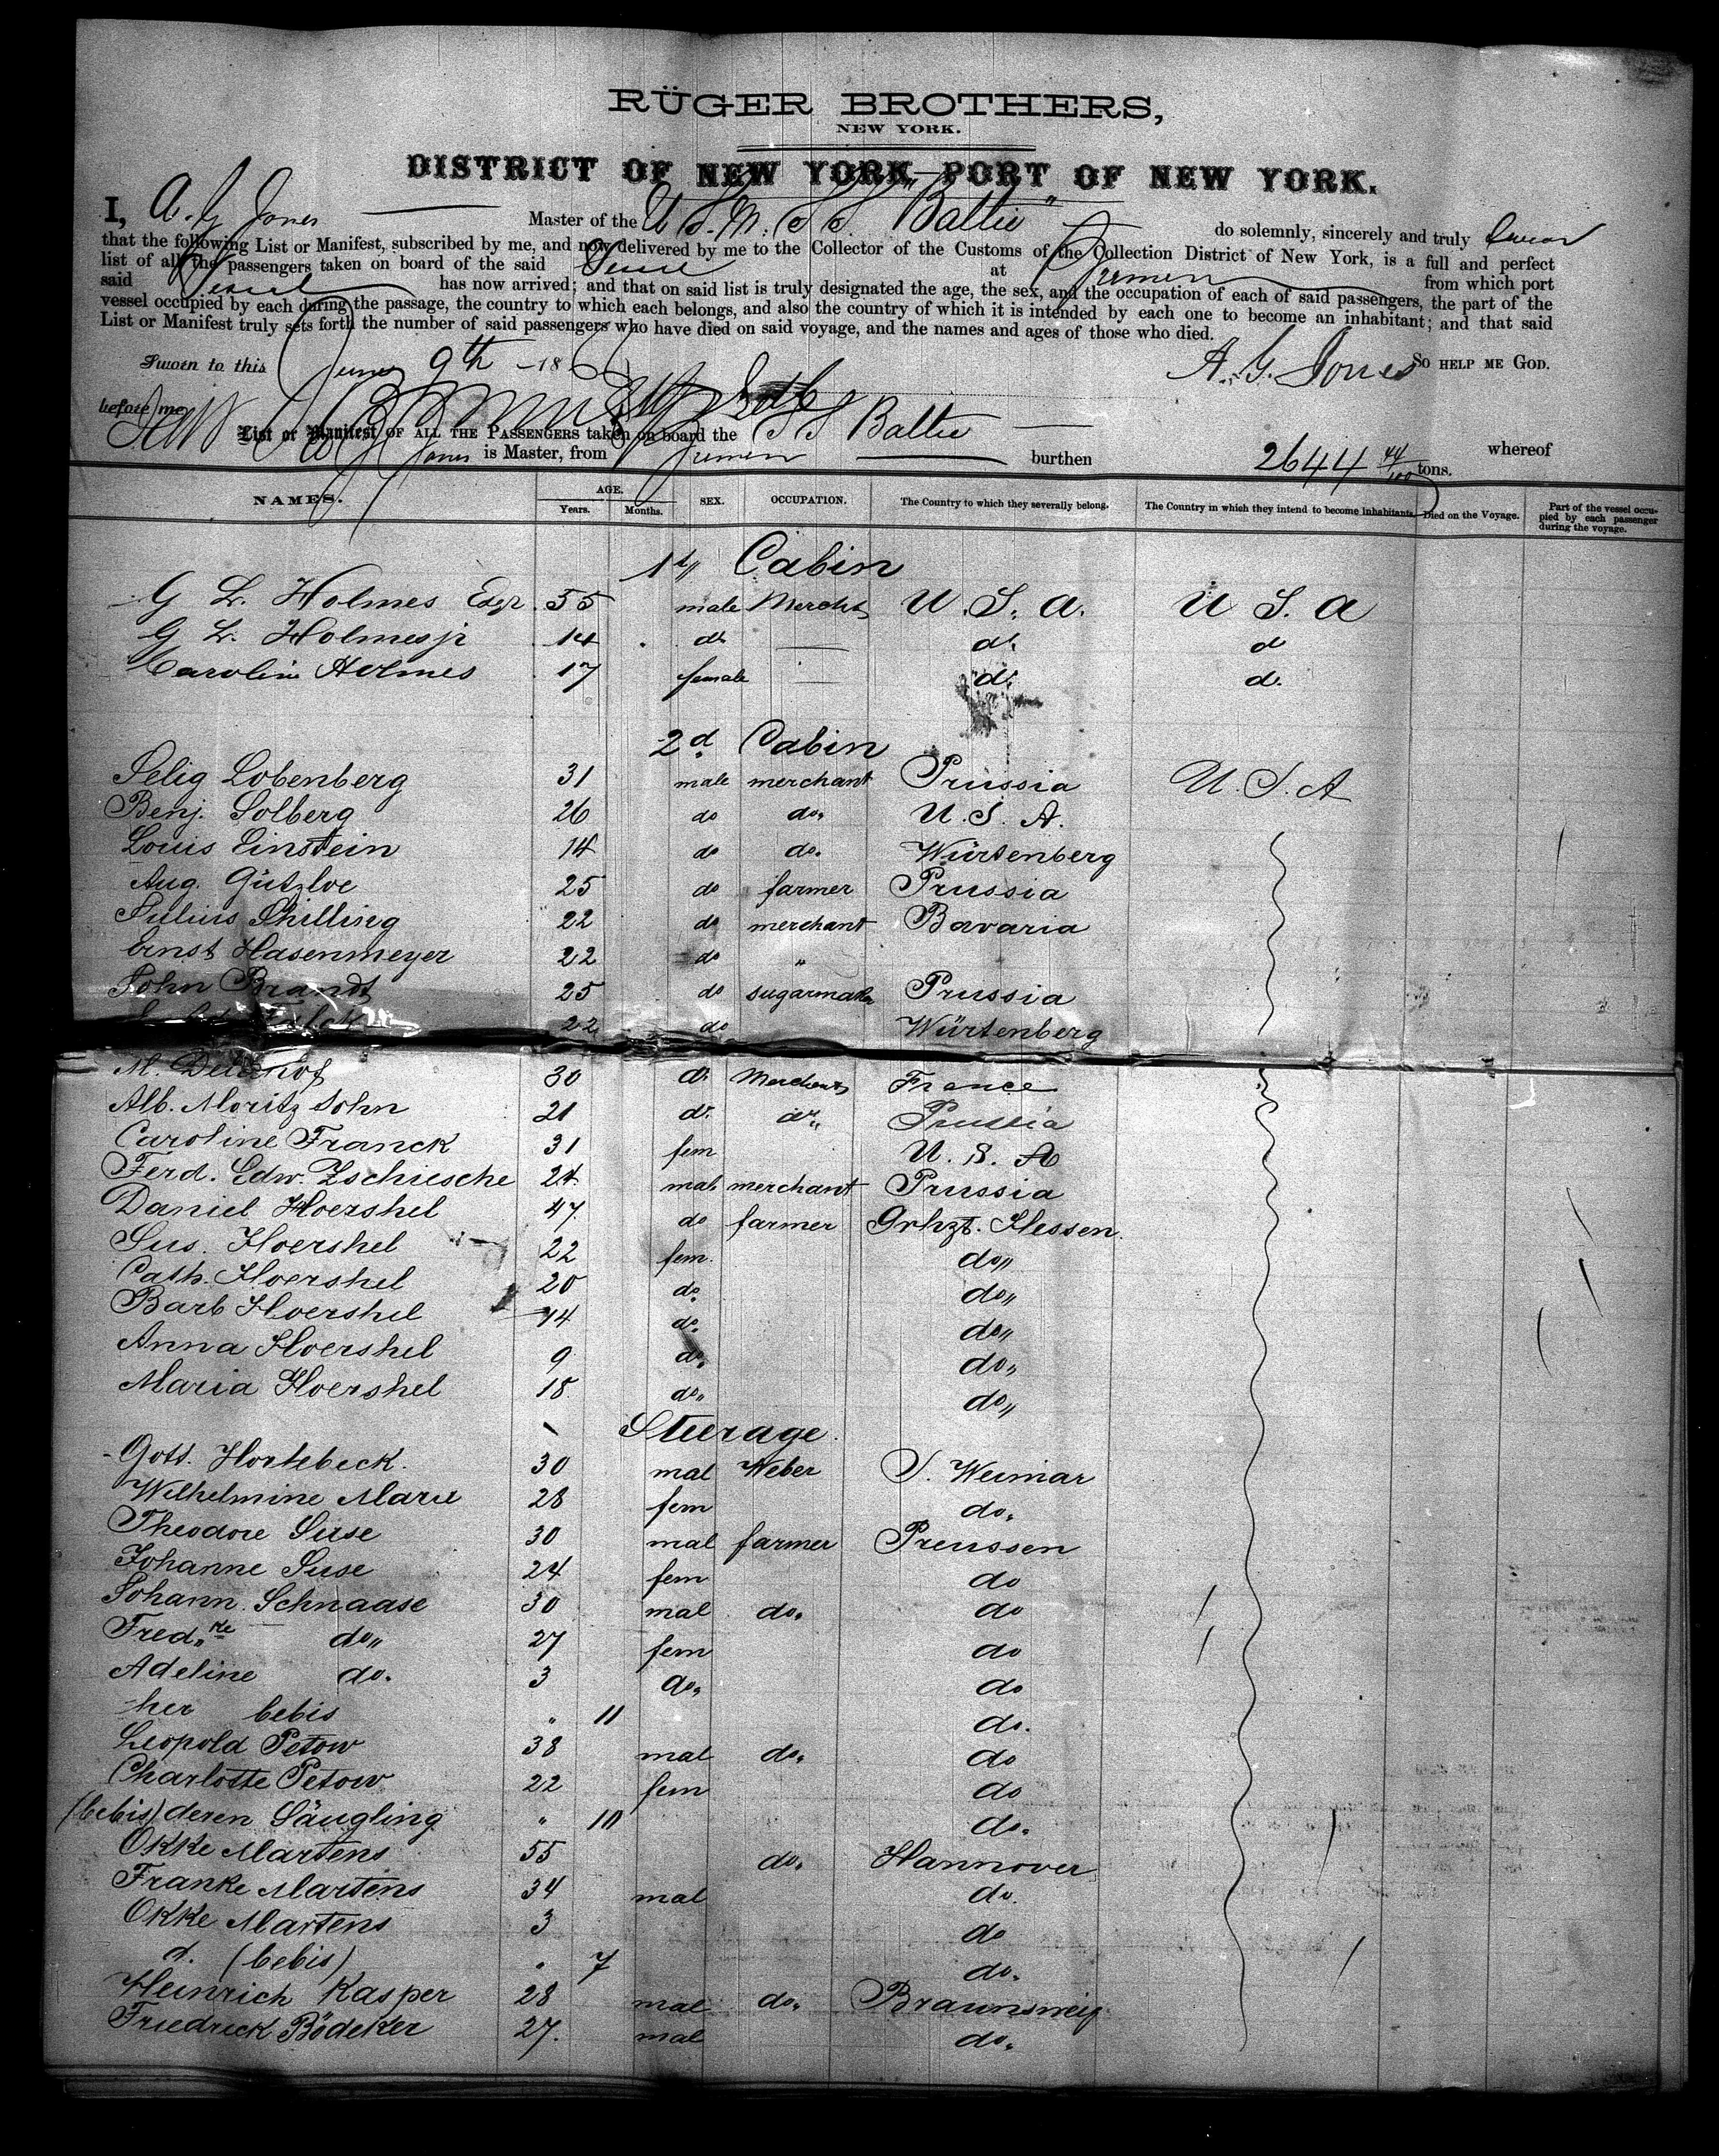 RÜGER BROTHERS,
NEW YORK.
DISTRICT OF NEW YORK—PORT OF NEW YORK.
I, A. G Jones Master of the U S. M. S S. "Baltic" do solemnly, sincerely and truly swear
that the following List or Manifest, subscribed by me, and now delivered by me to the Collector of the Customs of the Collection District of New York, is a full and perfect
list of all the passengers taken on board of the said at Bremen from which port
said Vessel has now arrived; and that on said list is truly designated the age, the sex, and the occupation of each of said passengers, the part of the
vessel occupied by each during the passage, the country to which each belongs, and also the country of which it is intended by each one to become an inhabitant; and that said
List or Manifest truly sets forth the number of said passengers who have died on said voyage, and the names and ages of those who died.
Sworn to this June 9th 186 A. G. Jones SO HELP ME GOD.
before me,
List or Manifest OF ALL THE PASSENGERS taken on board the S S Baltic whereof
A G Jones is Master, from Bremen burthen 2644 44/100 tons.
NAMES. AGE. Years. Months. SEX. OCCUPATION. The Country to which they severally belong. The Country in which they intend to become inhabitants. Died on the Voyage. Part of the vessel occupied by each passenger during the voyage.
1st Cabin
G L. Holmes Esqr. 55 male Mercht U. S. A. U S. A
G L. Holmes jr 14 do d. d
Carolin Holmes 17 female d. d.
2d Cabin
Selig Lobenberg 31 male merchant Prussia U. S. A
Benj. Solberg 26 do do. U. S. A.
Louis Einstein 14 do do. Würtenberg
Aug. Gützloe 25 do farmer Prussia
Julius Shilling 22 do merchant Bavaria
Ernst Hasenmeyer 22 do "
John Brandt 25 do sugarmaker Prussia
22 do Würtenberg
M. 30 do Merchant France
Alb. Moritz Sohn 21 do. do. Prussia
Caroline Franck 31 fem U. S. A
Ferd. Edw. Zschiesche 24 mal merchant Prussia
Daniel Hoershel 47. do farmer Grhzt. Hessen.
Sus. Hoershel 22 fem. do"
Cath. Hoershel 20 do. do"
Barb Hoershel 14 do. do"
Anna Hoershel 9 do. do"
Maria Hoershel 18 do" do"
Steerage.
Gott. Hortebeck. 30 mal Weber S. Weimar
Wilhelmine Marie 28 fem do.
Theodore Suse 30 mal farmer Preussen
Johanne Suse 24 fem do
Johann Schnaase 30 mal do. do
Fred.ke do" 27 fem do
Adeline do. 3 do. do
her bebis " 11 do.
Leopold Petow 38 mal do. do
Charlotte Petow 22 fem do
(bebis) deren Säugling " 10 do.
Okke Martens 55 do. Hannover
Franke Martens 34 mal do.
Okke Martens 3 do
d. (bebis) " 7 do.
Heinrich Kasper 28 mal do. Braunsweig
Friedrick Bödeker 27. mal do.